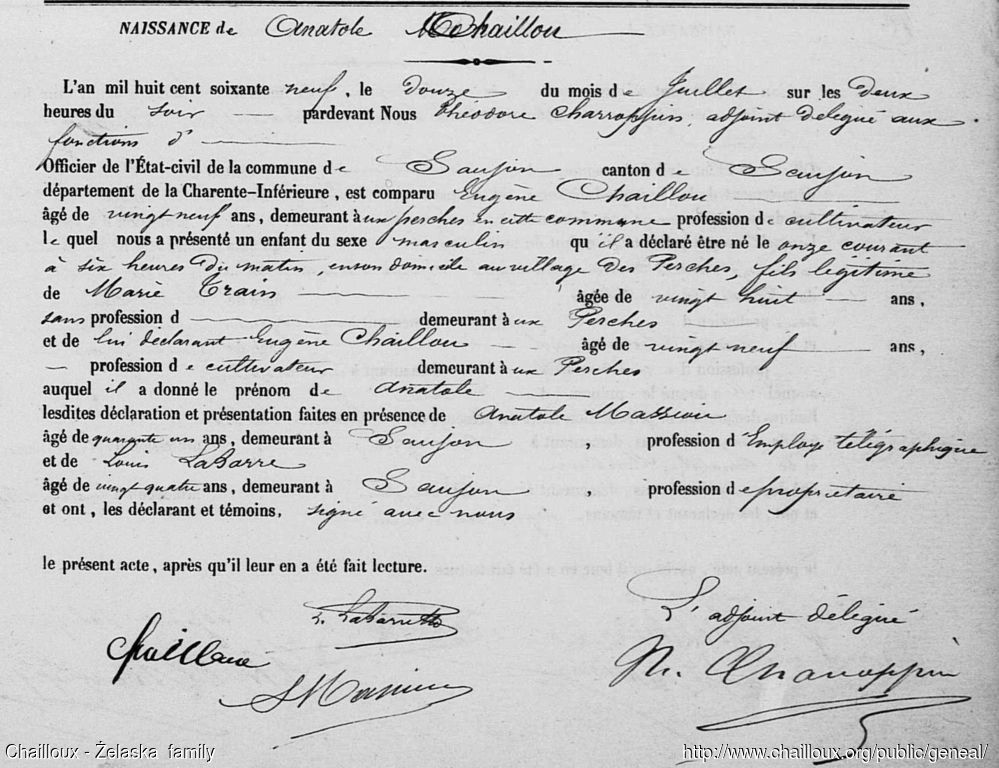 NAISSANCE de Anatole Chaillou
L'an mil huit cent soixante neuf, le Douze du mois de Juillet sur les Deux
heures du soir pardevant Nous Théodore Charroppin, adjoint délégué aux
fonctions d'
Officier de l'État-civil de la commune de Saujon canton de Saujon
département de la Charente-Inférieure, est comparu Eugène Chaillou
âgé de vingt neuf ans, demeurant à aux perches en cette commune profession de cultivateur
le quel nous a présenté un enfant du sexe masculin qu'il a déclaré être né le onze courant
à six heures du matin, en son domicile au village des Perches, fils légitime
de Marie Train âgée de vingt huit ans,
sans profession d demeurant à ux Perches
et de lui déclarant Eugène Chaillou âgé de vingt neuf ans,
profession de cultivateur demeurant à ux Perches
auquel il a donné le prénom de Anatole
lesdites déclaration et présentation faites en présence de Anatole Massiou
âgé de quarante un ans, demeurant à Saujon profession d Employé télégraphique
et de Louis LaBarre
âgé de vingt quatre ans, demeurant à Saujon profession de propriétaire
et ont, les déclarant et témoins, signé avec nous
le présent acte, après qu'il leur en a été fait lecture.
L'adjoint délégué
Chailloux - Želaska family http://www.chailloux.org/public/geneal/